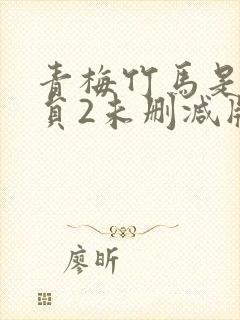 青梅竹马是
员2未删减版
廖昕